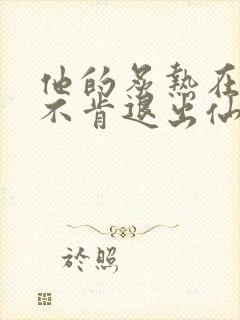 他的炙熱在
不肯退出仙
於照